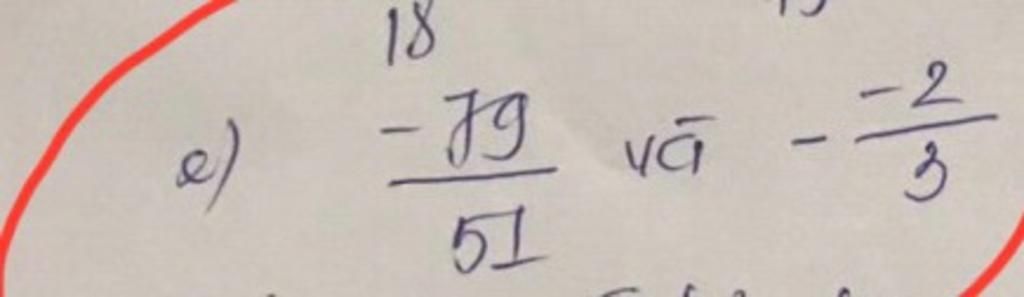 18
e) -79/51 và - -2/3